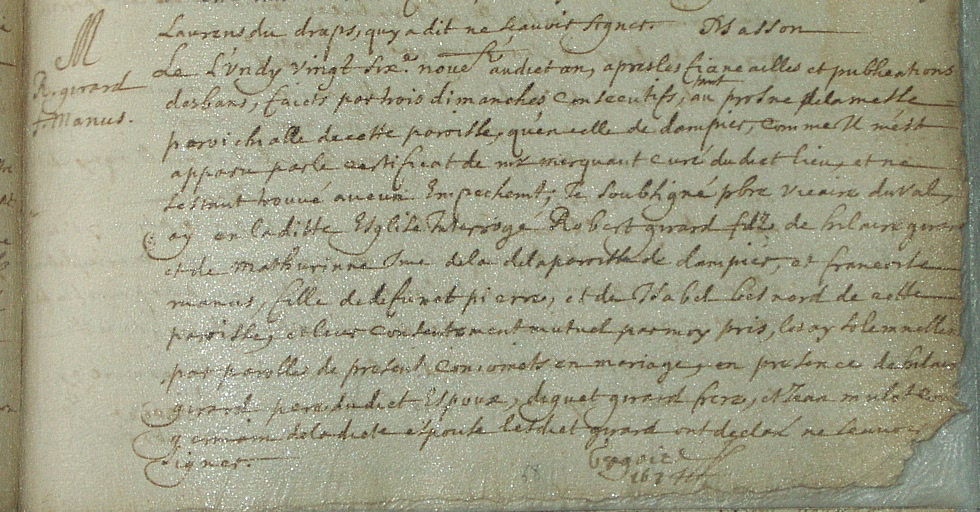 M
R. girard
f. Manus.
Laurens du draps, quy a dit ne scavoir signer. Masson
Le Lundy vingt sixe. nove. audict an, apres les fiancailles et publications
des bans, faicts par trois dimanches consecutifs, tant au prosne de la messe
parroichialle de cette paroisse, qu'en celle de dampier, comme Il m'est
apparu par le certificat de mr marquant curé dudict lieu, et ne
s'estant trouvé aucun Empechemt, Je soubsigné pbre vicaire du Val,
ay en laditte Esglise Interrogé Robert girard filz de hilaire girard
et de Mathurinne de la paroisse de dampier, et francoise
manus, fille de defunct pierre, et de Isabel besnard de cette
paroisse, et leur consentement mutuel par moy pris, les ay solemnellem
par parolles de present conjoincts en mariage, en presence de hilaire
girard pere dudict Espoux, girard frere, et Jean mulot
germain de ladicte espouse lesdict girard ont declaré ne scavoir
signer.